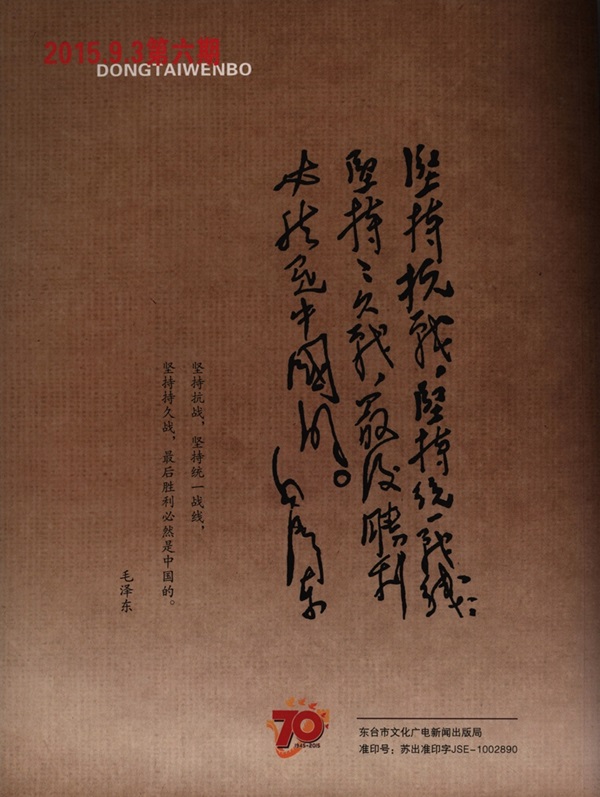 2015.9.3第六期
DONGTAIWENBO
堅持抗戰，堅持統一战线，
堅持持久戰，最後勝利
必然是中國的。毛澤东
坚持抗战，坚持统一战线，
坚持持久战，最后胜利必然是中国的。
毛泽东
70
1945-2015
东台市文化广电新闻出版局
准印号：苏出准印字JSE-1002890